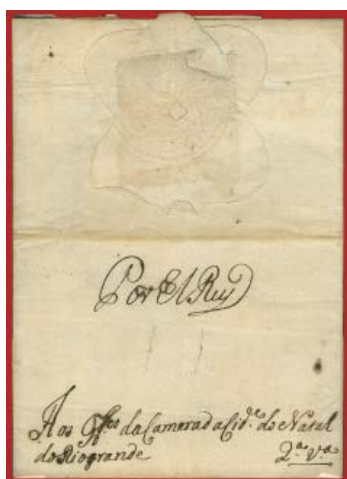 Por El Rey
Aos Off.es da Camera da Cid.e do Natal
do Riogrande 2.a v.a